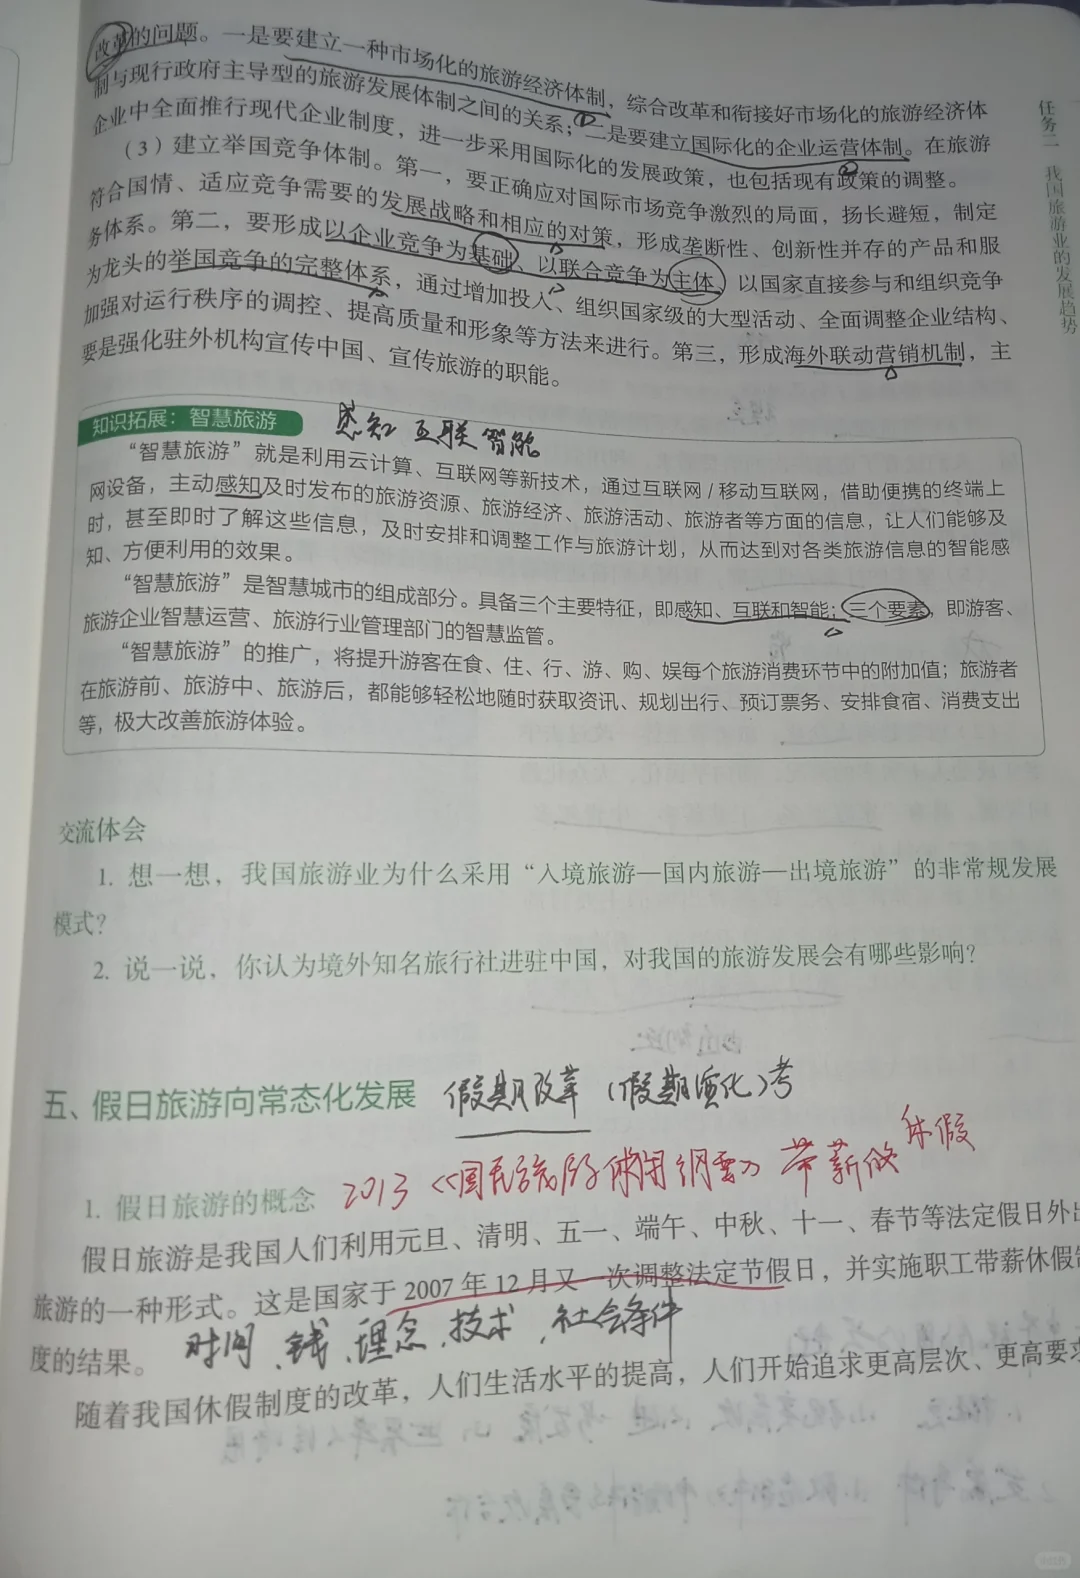 改革的问题。一是要建立一种市场化的旅游经济体制，综合改革和衔接好市场化的旅游经济体
制与现行政府主导型的旅游发展体制之间的关系；二是要建立国际化的企业运营体制。在旅游
企业中全面推行现代企业制度，进一步采用国际化的发展政策，也包括现有政策的调整。
（3）建立举国竞争体制。第一，要正确应对国际市场竞争激烈的局面，扬长避短，制定
符合国情、适应竞争需要的发展战略和相应的对策，形成垄断性、创新性并存的产品和服
务体系。第二，要形成以企业竞争为基础、以联合竞争为主体、以国家直接参与和组织竞争
为龙头的举国竞争的完整体系，通过增加投入、组织国家级的大型活动、全面调整企业结构、
加强对运行秩序的调控、提高质量和形象等方法来进行。第三，形成海外联动营销机制，主
要是强化驻外机构宣传中国、宣传旅游的职能。
任务二 我国旅游业的发展趋势
知识拓展：智慧旅游 感知 互联 智能
“智慧旅游”就是利用云计算、互联网等新技术，通过互联网/移动互联网，借助便携的终端上
网设备，主动感知及时发布的旅游资源、旅游经济、旅游活动、旅游者等方面的信息，让人们能够及
时，甚至即时了解这些信息，及时安排和调整工作与旅游计划，从而达到对各类旅游信息的智能感
知、方便利用的效果。
“智慧旅游”是智慧城市的组成部分。具备三个主要特征，即感知、互联和智能；三个要素，即游客、
旅游企业智慧运营、旅游行业管理部门的智慧监管。
“智慧旅游”的推广，将提升游客在食、住、行、游、购、娱每个旅游消费环节中的附加值；旅游者
在旅游前、旅游中、旅游后，都能够轻松地随时获取资讯、规划出行、预订票务、安排食宿、消费支出
等，极大改善旅游体验。
交流体会
1. 想一想，我国旅游业为什么采用“入境旅游—国内旅游—出境旅游”的非常规发展
模式？
2. 说一说，你认为境外知名旅行社进驻中国，对我国的旅游发展会有哪些影响？
五、假日旅游向常态化发展 假期改革（假期演化）考
1. 假日旅游的概念 2013《国民旅游休闲纲要》带薪休假
假日旅游是我国人们利用元旦、清明、五一、端午、中秋、十一、春节等法定假日外出
旅游的一种形式。这是国家于2007年12月又一次调整法定节假日，并实施职工带薪休假制
度的结果。 时间、钱、理念、技术、社会条件
随着我国休假制度的改革，人们生活水平的提高，人们开始追求更高层次、更高要求